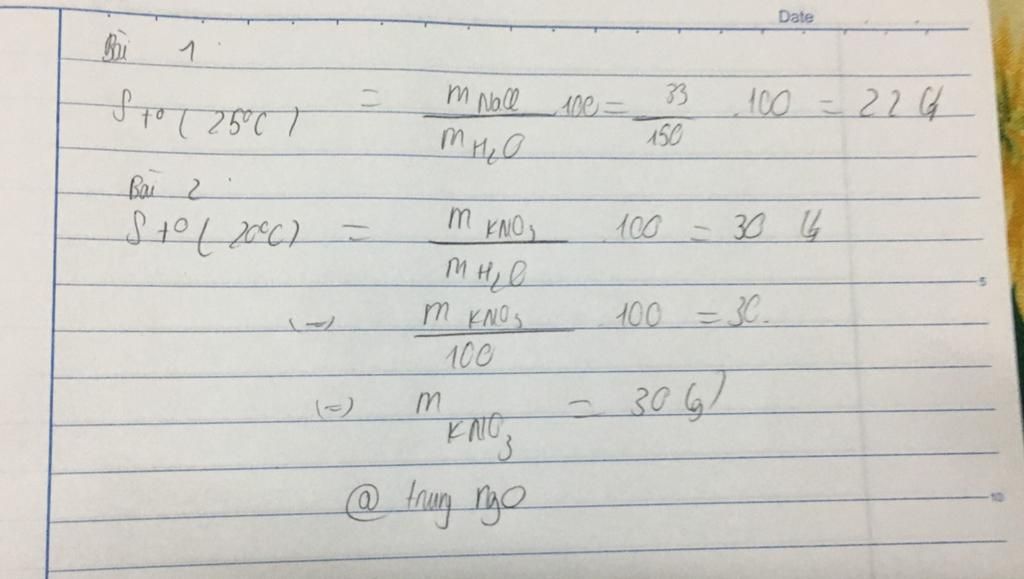 Date
Bài 1
St° (25°C) = m NaCl / m H₂O .100 = 33 / 150 .100 = 22 G
Bài 2
St° (20°C) = m KNO₃ / m H₂O .100 = 30 G
(=) m KNO₃ / 100 .100 = 30.
5
(=) m KNO₃ = 30 (g)
@ trung ngo
10